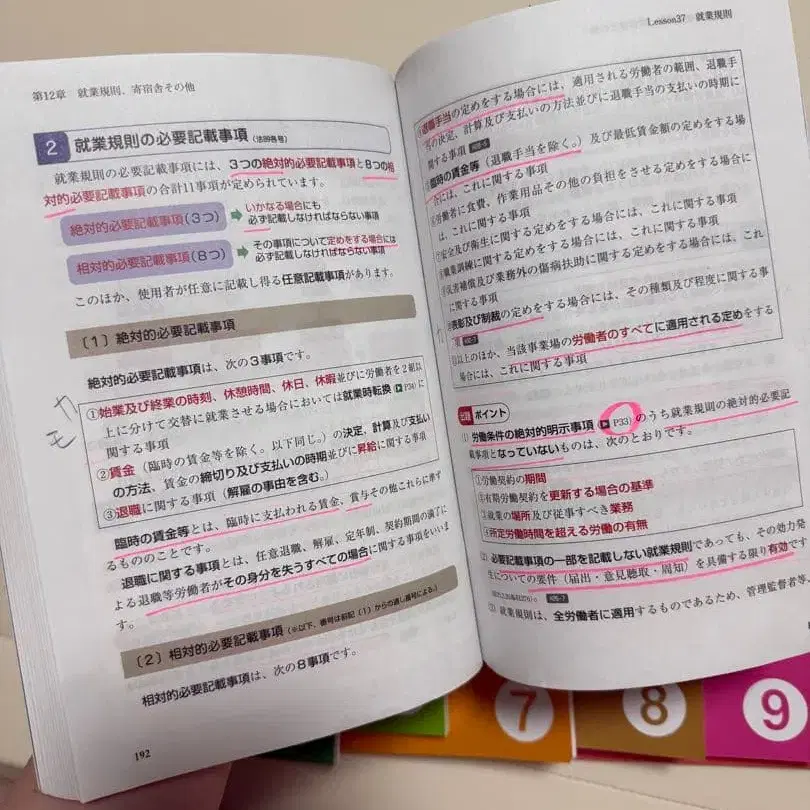 第12章 就業規則、寄宿舎その他
2 就業規則の必要記載事項(法89条各号)
就業規則の必要記載事項には、3つの絶対的必要記載事項と8つの相
対的必要記載事項の合計11事項が定められています。
絶対的必要記載事項(3つ)
いかなる場合にも
必ず記載しなければならない事項
相対的必要記載事項(8つ)
その事項について定めをする場合には
必ず記載しなければならない事項
このほか、使用者が任意に記載し得る任意記載事項があります。
〔1〕絶対的必要記載事項
絶対的必要記載事項は、次の3事項です。
①始業及び終業の時刻、休憩時間、休日、休暇並びに労働者を2組以
上に分けて交替に就業させる場合においては就業時転換(P34)に
関する事項
②賃金(臨時の賃金等を除く。以下同じ。)の決定、計算及び支払い
の方法、賃金の締切り及び支払いの時期並びに昇給に関する事項
③退職に関する事項(解雇の事由を含む。)
臨時の賃金等とは、臨時に支払われる賃金、賞与その他これらに準ず
るもののことです。
退職に関する事項とは、任意退職、解雇、定年制、契約期間の満了に
よる退職等労働者がその身分を失うすべての場合に関する事項をいいま
す。
〔2〕相対的必要記載事項(※以下、番号は前記(1)からの通し番号による。)
相対的必要記載事項は、次の8事項です。
192
Lesson37 就業規則
退職手当の定めをする場合には、適用される労働者の範囲、退職手
の決定、計算及び支払いの方法並びに退職手当の支払いの時期に
関する事項
臨時の賃金等(退職手当を除く。)及び最低賃金額の定めをする場
には、これに関する事項
労働者に食費、作業用品その他の負担をさせる定めをする場合に
、これに関する事項
安全及び衛生に関する定めをする場合には、これに関する事項
職業訓練に関する定めをする場合には、これに関する事項
災害補償及び業務外の傷病扶助に関する定めをする場合には、これ
に関する事項
表彰及び制裁の定めをする場合には、その種類及び程度に関する事
項
以上のほか、当該事業場の労働者のすべてに適用される定めをする
場合には、これに関する事項
出題 ポイント
(1) 労働条件の絶対的明示事項(P33)のうち就業規則の絶対的必要記
載事項となっていないものは、次のとおりです。
①労働契約の期間
②有期労働契約を更新する場合の基準
③就業の場所及び従事すべき業務
④所定労働時間を超える労働の有無
(2) 必要記載事項の一部を記載しない就業規則であっても、その効力発
生についての要件(届出・意見聴取・周知)を具備する限り有効です
(3) 就業規則は、全労働者に適用するものであるため、管理監督者等、
7
8
9